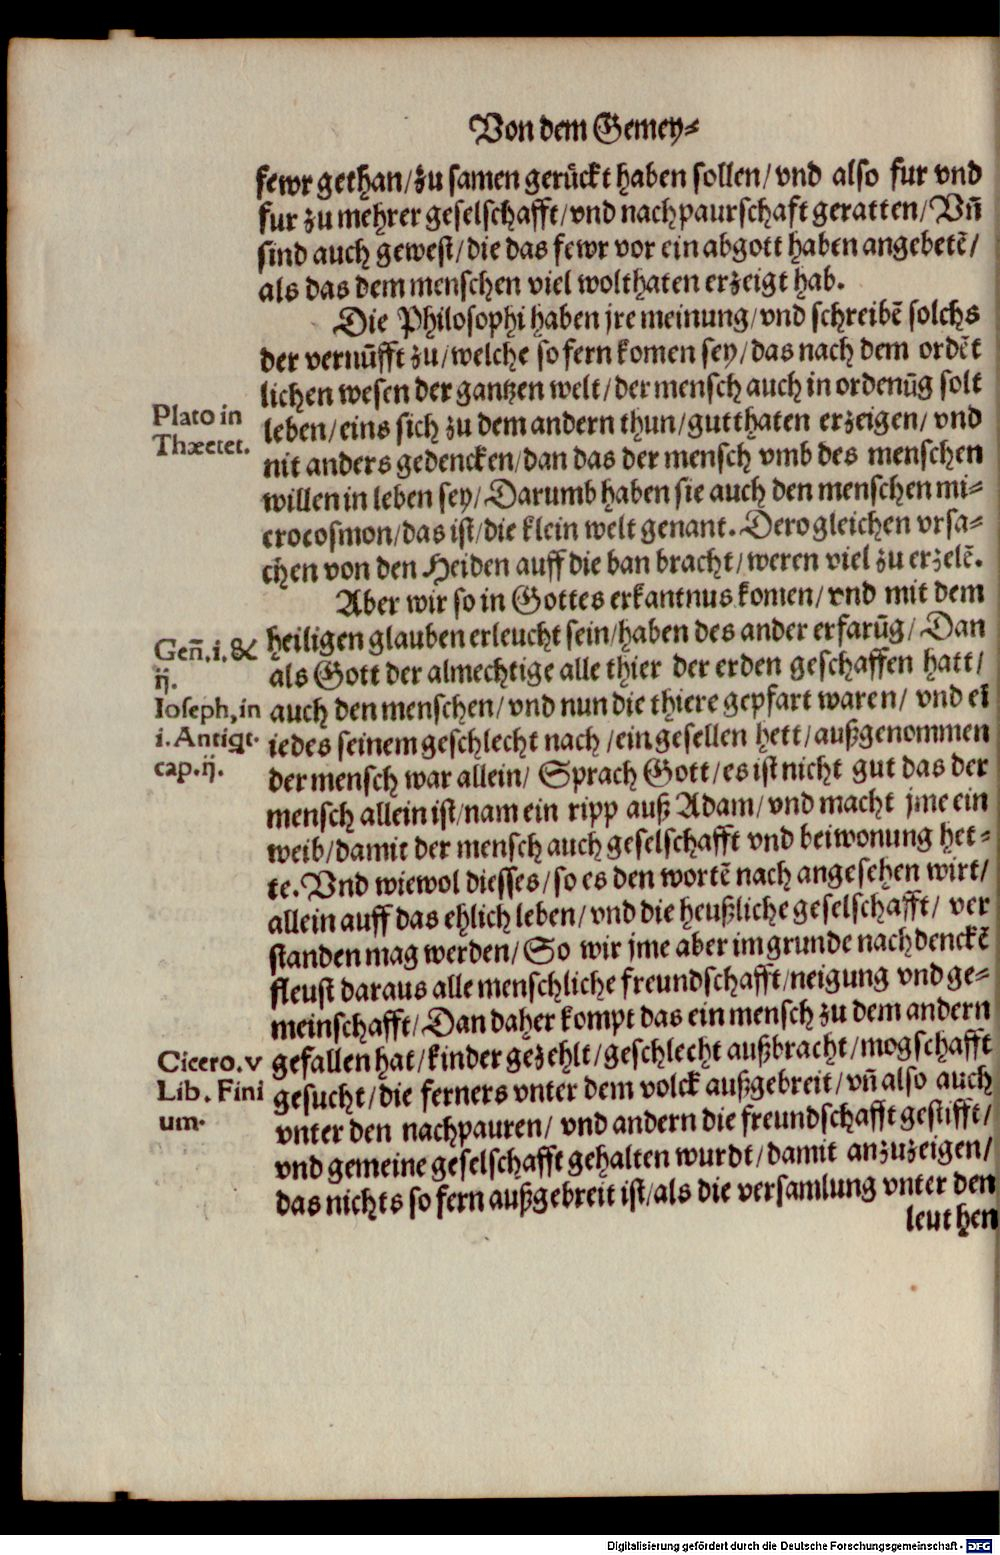 Von dem Gemey⸗
fewr gethan/zu samen gerückt haben sollen/vnd also fur vnd
fur zu mehrer geselschafft/vnd nachpaurschaft geratten/Vñ
sind auch gewest/die das fewr vor ein abgott haben angebetẽ/
als das dem menschen viel wolthaten erzeigt hab.
Die Philosophi haben jre meinung/vnd schreibẽ solchs
der vernũfft zu/welche so fern komen sey/das nach dem ordẽt
lichen wesen der gantzen welt/der mensch auch in ordenũg solt
Plato in
Thæetet.
leben/eins sich zu dem andern thun/gutthaten erzeigen/vnd
nit anders gedencken/dan das der mensch vmb des menschen
willen in leben sey/Darumb haben sie auch den menschen mi⸗
crocosmon/das ist/die klein welt genant. Dero gleichen vrsa⸗
chen von den Heiden auff die ban bracht/weren viel zu erzelẽ.
Aber wir so in Gottes erkantnus komen/vnd mit dem
Geñ.i.&
ij.
Ioseph,in
i.Antiqt.
cap.ij.
heiligen glauben erleucht sein/haben des ander erfarũg/Dan
als Gott der almechtige alle thier der erden geschaffen hatt/
auch den menschen/vnd nun die thiere gepfart waren/vnd eĩ
iedes seinem geschlecht nach/ein gesellen hett/außgenommen
der mensch war allein/Sprach Gott/es ist nicht gut das der
mensch allein ist/nam ein ripp auß Adam/vnd macht jme ein
weib/damit der mensch auch geselschafft vnd beiwonung het⸗
te. Vnd wiewol diesses/so es den wortẽ nach angesehen wirt/
allein auff das ehlich leben/vnd die heußliche geselschafft/ver
standen mag werden/So wir jme aber im grunde nachdenckẽ
fleust daraus alle menschliche freundschafft/neigung vnd ge⸗
meinschafft/Dan daher kompt das ein mensch zu dem andern
Cicero.v
Lib. Fini
um.
gefallen hat/kinder gezehlt/geschlecht außbracht/mogschafft
gesucht/die ferners vnter dem volck außgebreit/vñ also auch
vnter den nachpauren/vnd andern die freundschafft gestifft/
vnd gemeine geselschafft gehalten wurdt/damit anzuzeigen/
das nichts so fern außgebreit ist/als die versamlung vnter den
leuthen
Digitalisierung gefördert durch die Deutsche Forschungsgemeinschaft - DFG